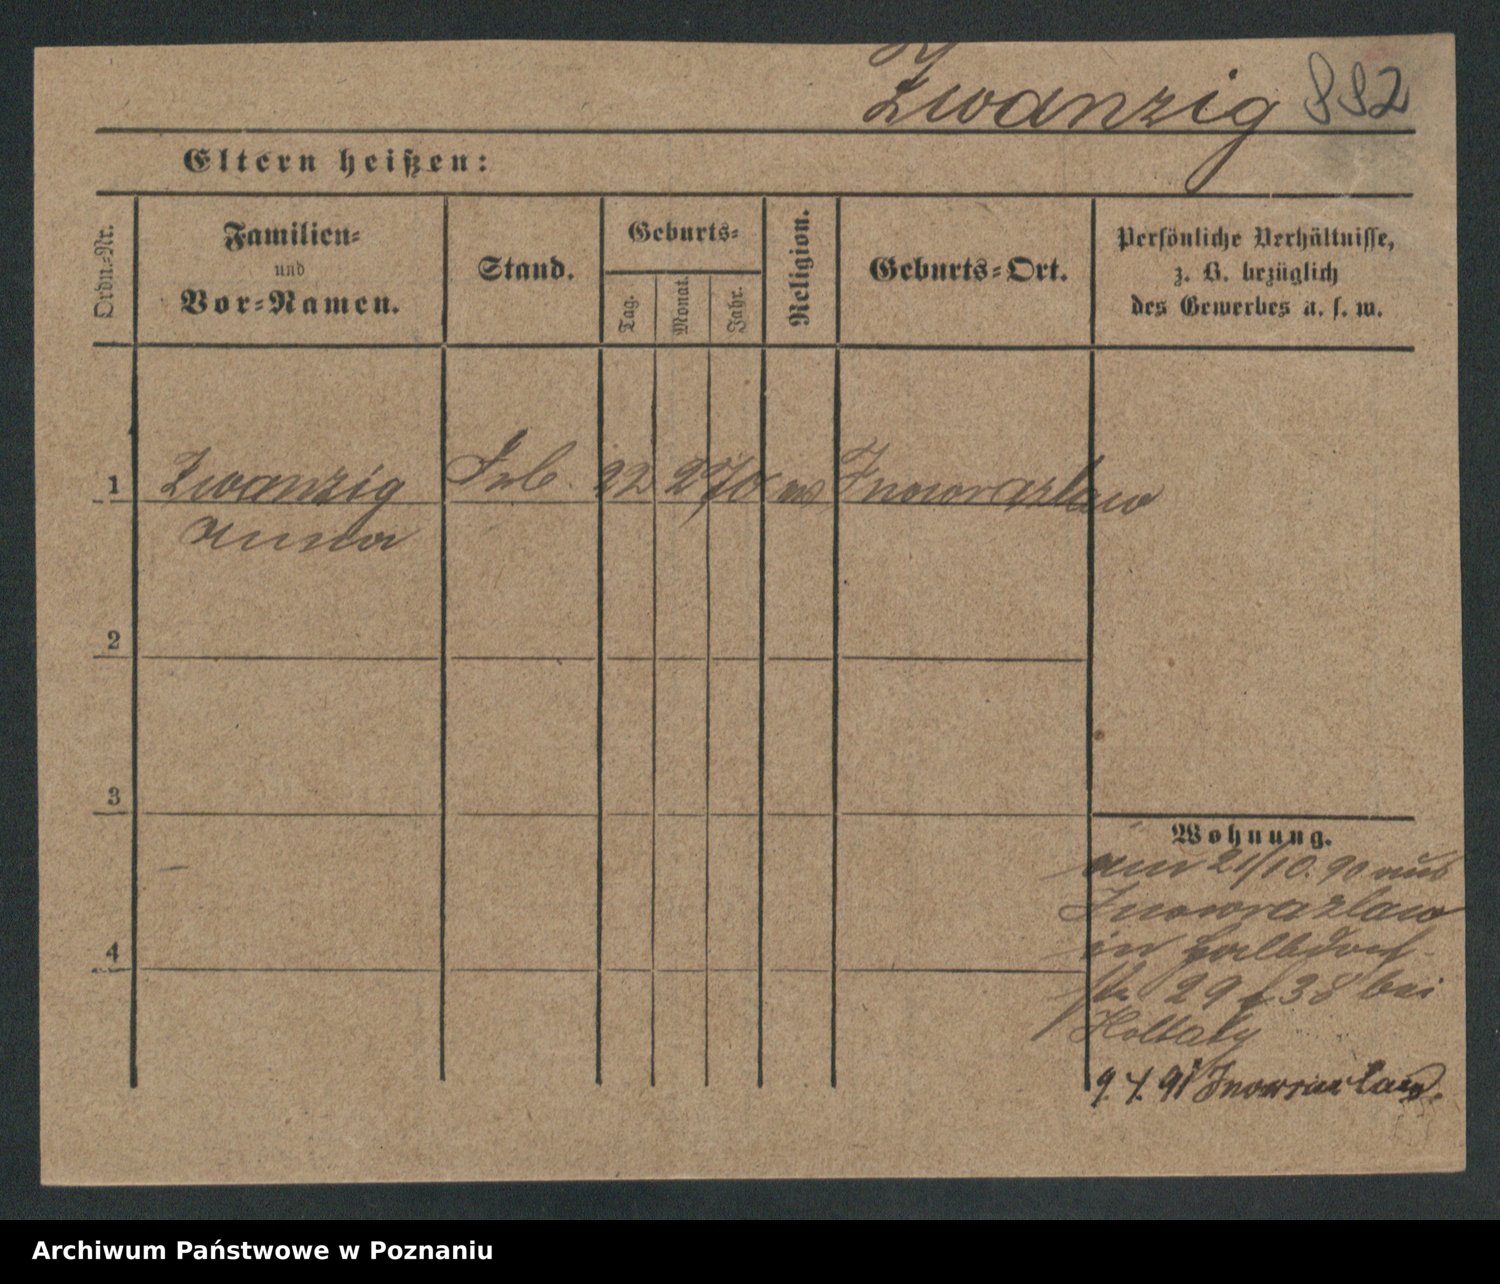 Zwanzig 882
Eltern heißen:
Ordn.-Nr.
Familien-
und
Vor-Namen.
Stand.
Geburts-
Tag.
Monat.
Jahr.
Religion.
Geburts-Ort.
Persönliche Verhältnisse,
z. B. bezüglich
des Gewerbes u. s. w.
1 Zwanzig 22 2 70 Inowrazlaw
Anna
2
3
4
Wohnung.
am 21/10. 90 aus
Inowrazlaw
in Halbdorf-
str 29 b 38 bei
9. 4. 91 Inowrazlaw.
Archiwum Państwowe w Poznaniu